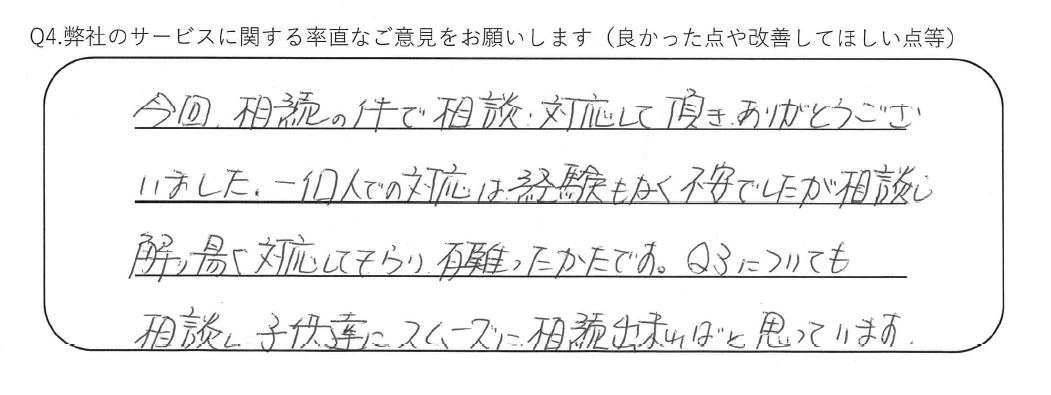 Q4.弊社のサービスに関する率直なご意見をお願いします（良かった点や改善してほしい点等）
今回、相続の件で相談、対応して頂き、ありがとうござ
いました、一個人での対応は経験もなく不安でしたが相談し
解り易く対応してもらい有難ったかたです。Q3についても
相談し子供達にスムーズに相続出来ればと思っています。